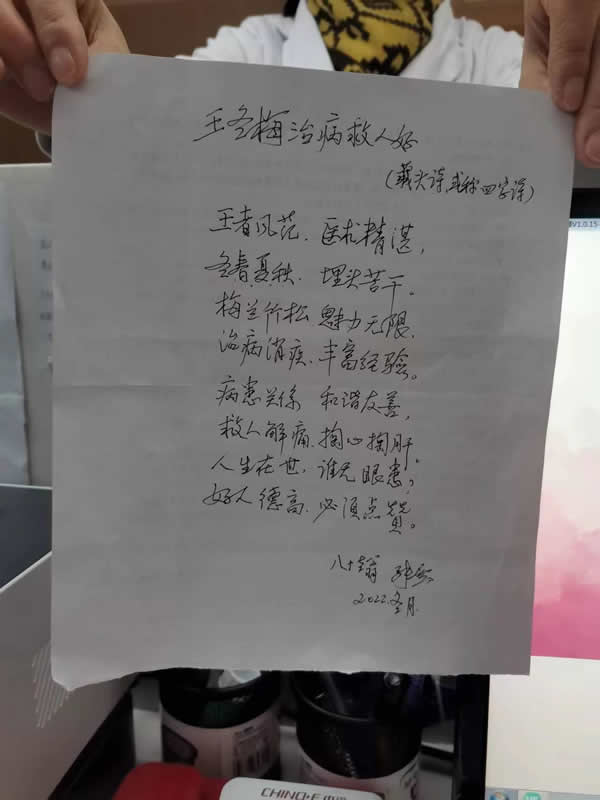 王冬梅治病救人好
(藏头诗,或称四字诗)
王者风范、医术精湛,
冬春夏秋、埋头苦干。
梅兰竹松、魅力无限、
治病消疾、丰富经验。
病患关系 和谐友善,
救人解痛、掏心掏肝。
人生在世、谁无眼患?
好人德高、必须点赞。
八十翁
2022.冬月
V1.0.15
CHINO-E